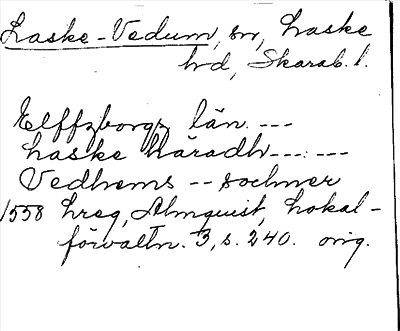 Laske-Vedum, sn, Laske
hd, Skarab. l.
Elffzborgz län. ---
Laske häradh --- : ---
Vedhems -- sochner
1558 hreg, Almquist, Lokal-
förvaltn. 3, s. 240. orig.